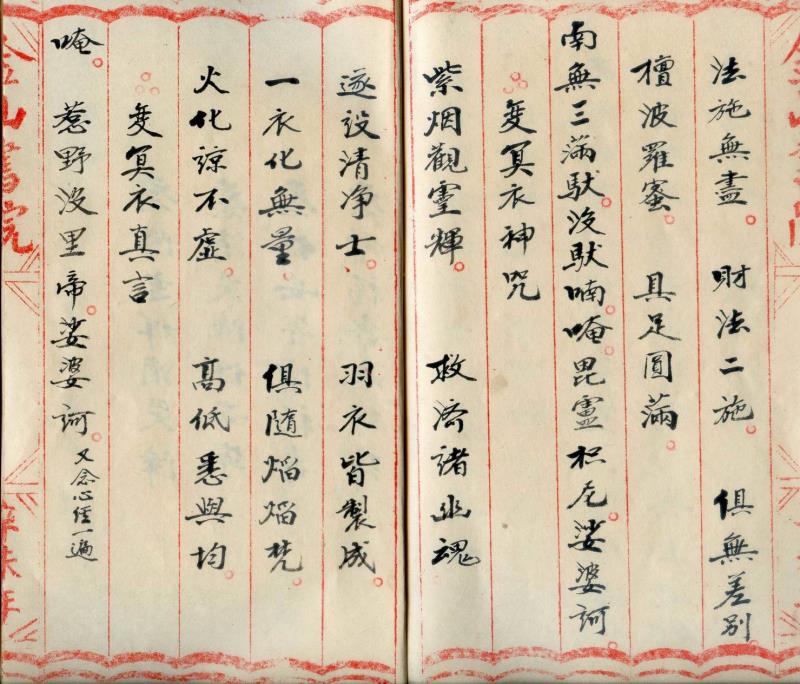 法施無盡。財法二施。俱無差別
檀波羅蜜。具足圓滿。
南無三滿馱沒馱喃唵毘靈枳尼娑婆訶。
變冥衣神咒
紫烟觀靈輝。救济諸幽魂
遂設清净士。羽衣皆製成。
一衣化無量 俱隨焰焰焚。
火化諒不虛。高低悉與均。
變冥衣真言
唵。惹野没里帝。娑婆訶。又念心經一遍
金山書院